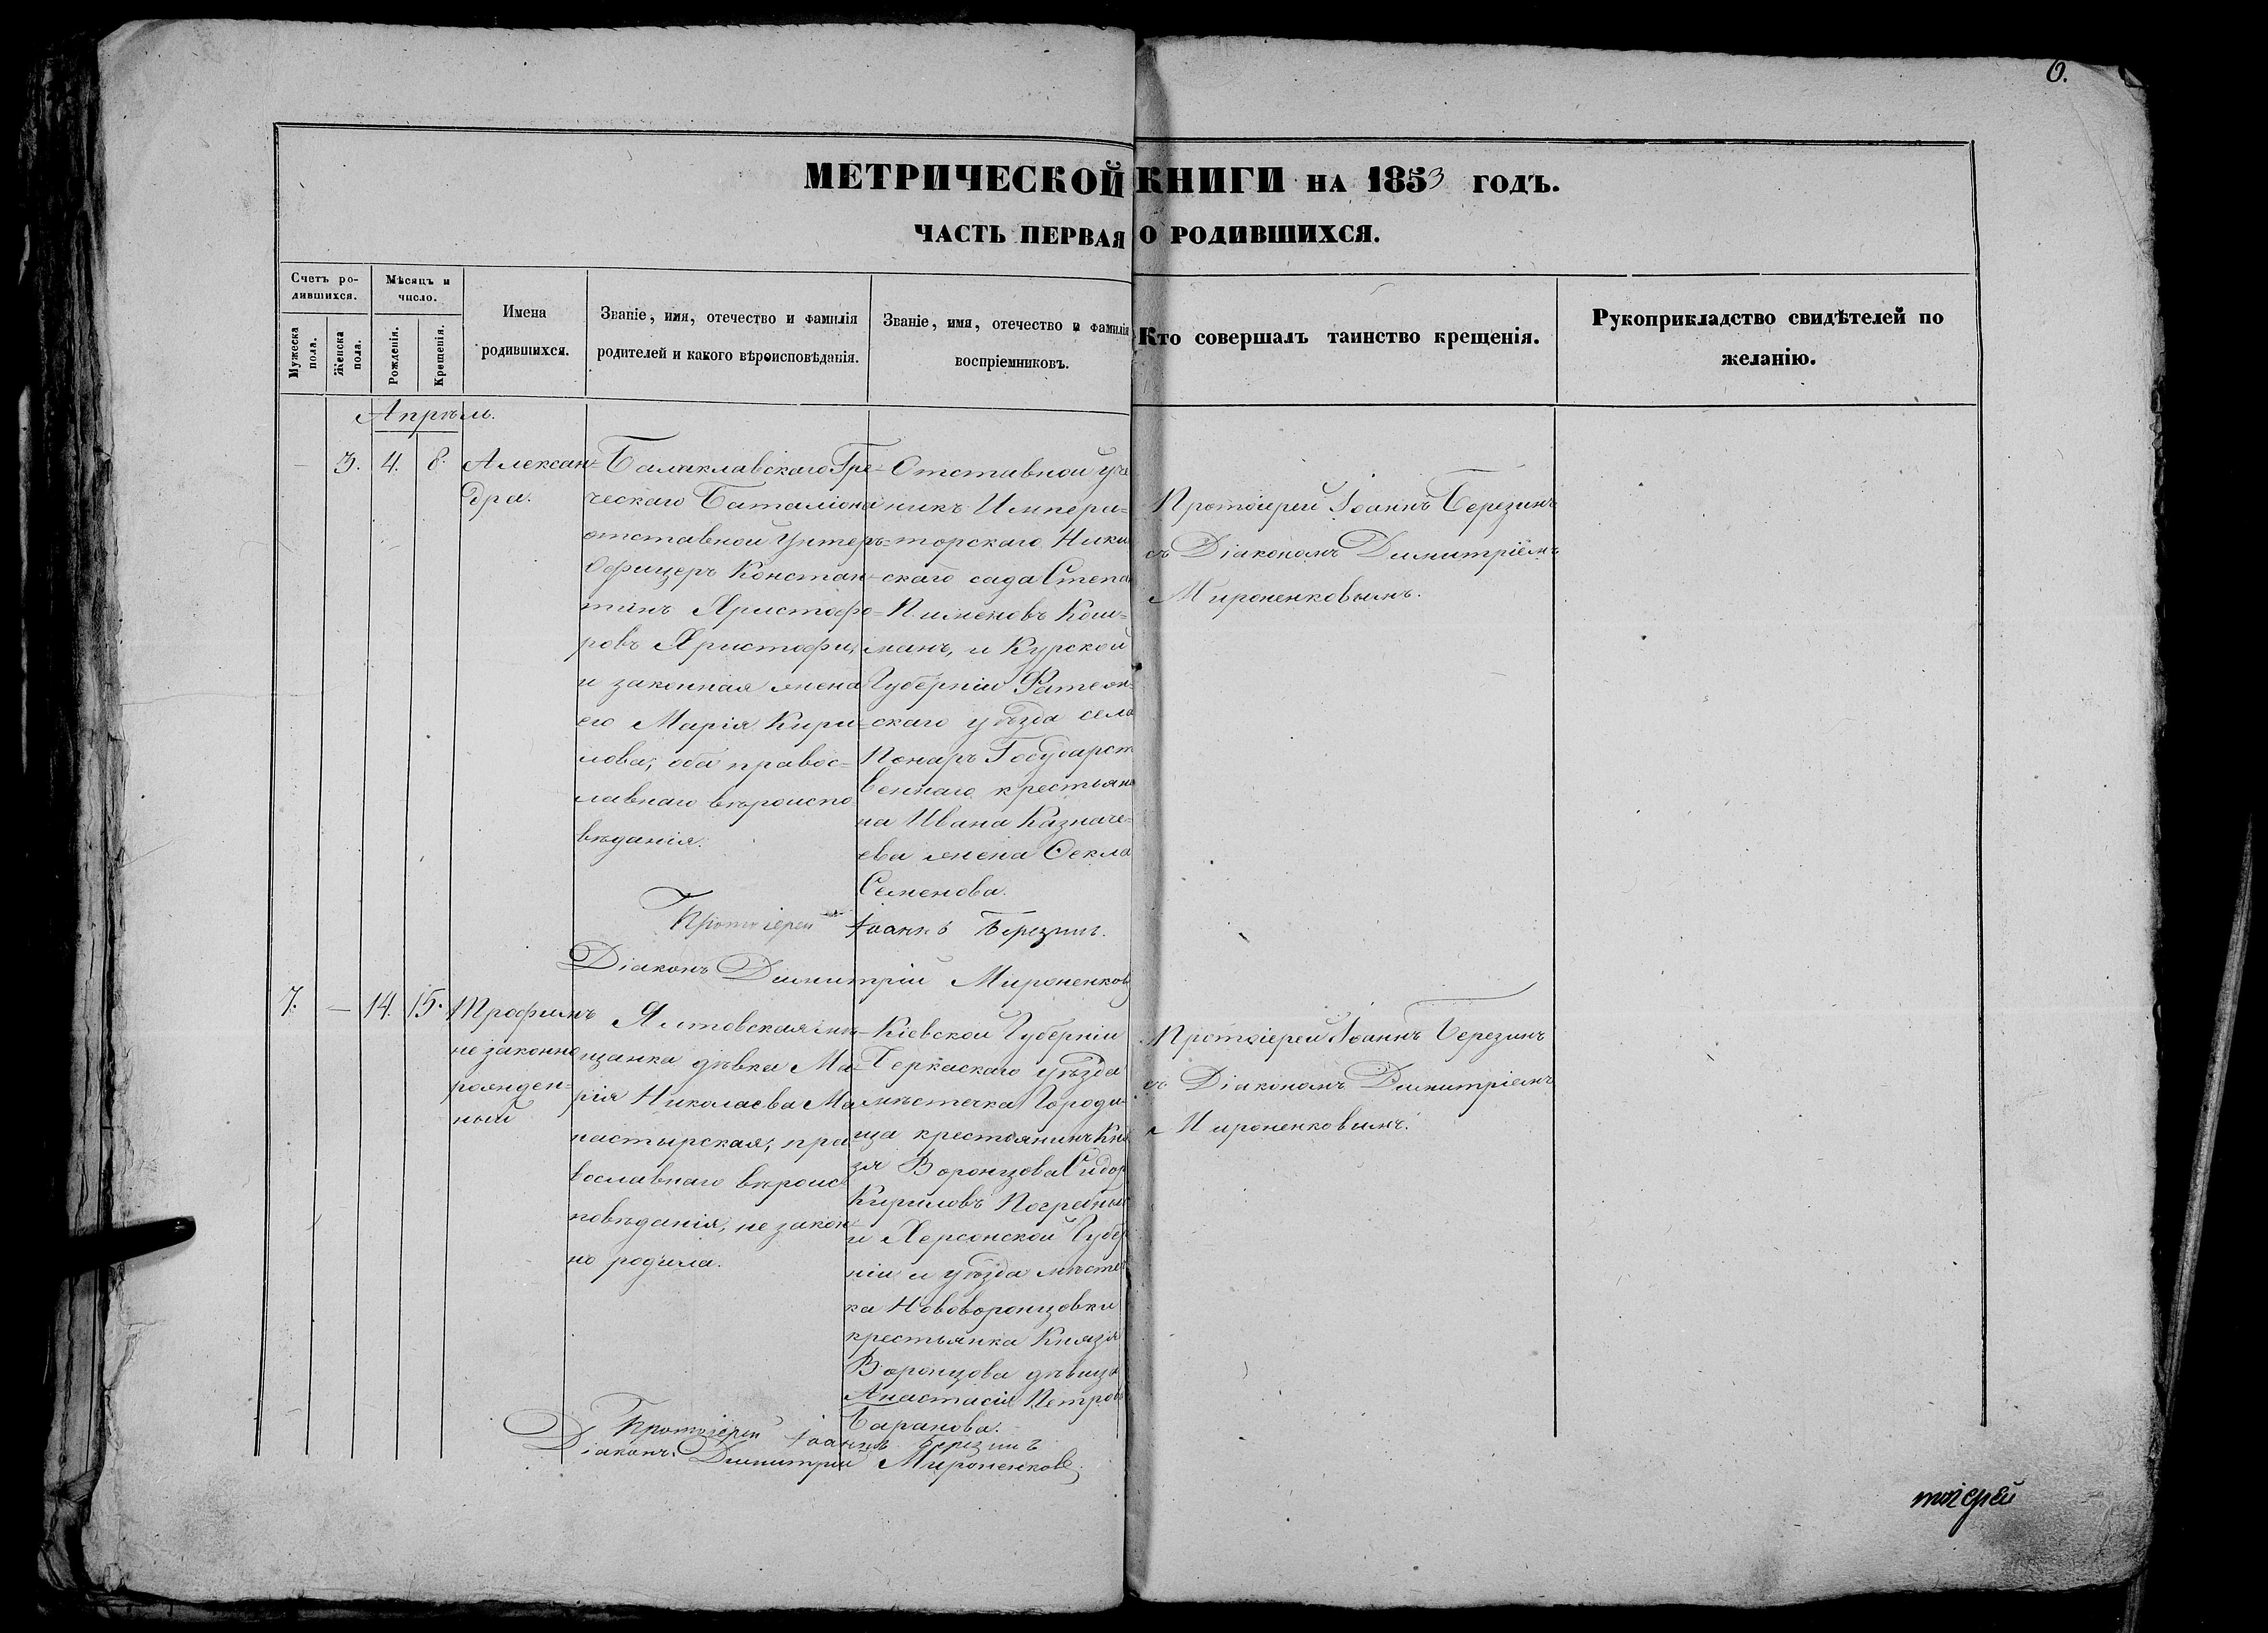 6.
МЕТРИЧЕСКОЙ КНИГИ НА 1853 ГОДЪ.
ЧАСТЬ ПЕРВАЯ О РОДИВШИХСЯ.
Счетъ ро-
дившихся.
Мужеска пола.
Женска пола.
Мѣсяцъ и
число.
Рожденія.
Крещенія.
Имена
родившихся.
Званіе, имя, отечество и фамилія
родителей и какого вѣроисповѣданія.
Званіе, имя, отечество и фамилія
воспріемниковъ.
Кто совершалъ таинство крещенія.
Рукоприкладство свидѣтелей по
желанію.
Апрѣль.
— 3. 4. 8.
Алексан=
дра.
Балаклавскаго Гре=
ческаго Баталіона
отставной Унтеръ=
Офицеръ Констан=
тинъ Христофо=
ровъ Христофи,
и законная жена
его Марія Кири=
лова; оба правос=
лавнаго вѣроиспо
вѣданія.
Отставной уче
никъ Импера=
торскаго Ники
скаго сада Степа
Пименовъ Кош=
манъ, и Курской
Губерніи
скаго уѣзда села
Понаръ Государст
веннаго крестьяни
на Ивана Казначе=
ева жена Ѳекла
Семенова.
Протоіерей Іоаннъ Березинъ
съ Діакономъ Димитріемъ
Мироненковымъ.
Протоіерей Іоаннъ Березинъ.
Діаконъ Димитрій Мироненковъ
7. — 14. 15.
Трофимъ
не законно
рожден=
ный
Ялтовская мѣ=
щанка дѣвка Ма=
рія Николаева Ма
настырская; пра
вославнаго вѣроис
повѣданія, не закон=
но родила.
Кіевской Губерніи
Черкаскаго уѣзда
мѣстечка Городи=
ща крестьянинъ Кня
зя Воронцова Сидор
Кириловъ Погребный
и Херсонской Губер
ніи и уѣзда мѣстеч
ка Нововоронцовки
крестьянка Князя
Воронцова дѣвица
Анастасія Петров
Баранова.
Протоіерей Іоаннъ Березинъ
съ Діакономъ Димитріемъ
Мироненковымъ.
Протоіерей Іоаннъ Березинъ
Діаконъ Димитрій Мироненковъ.
тоіерей